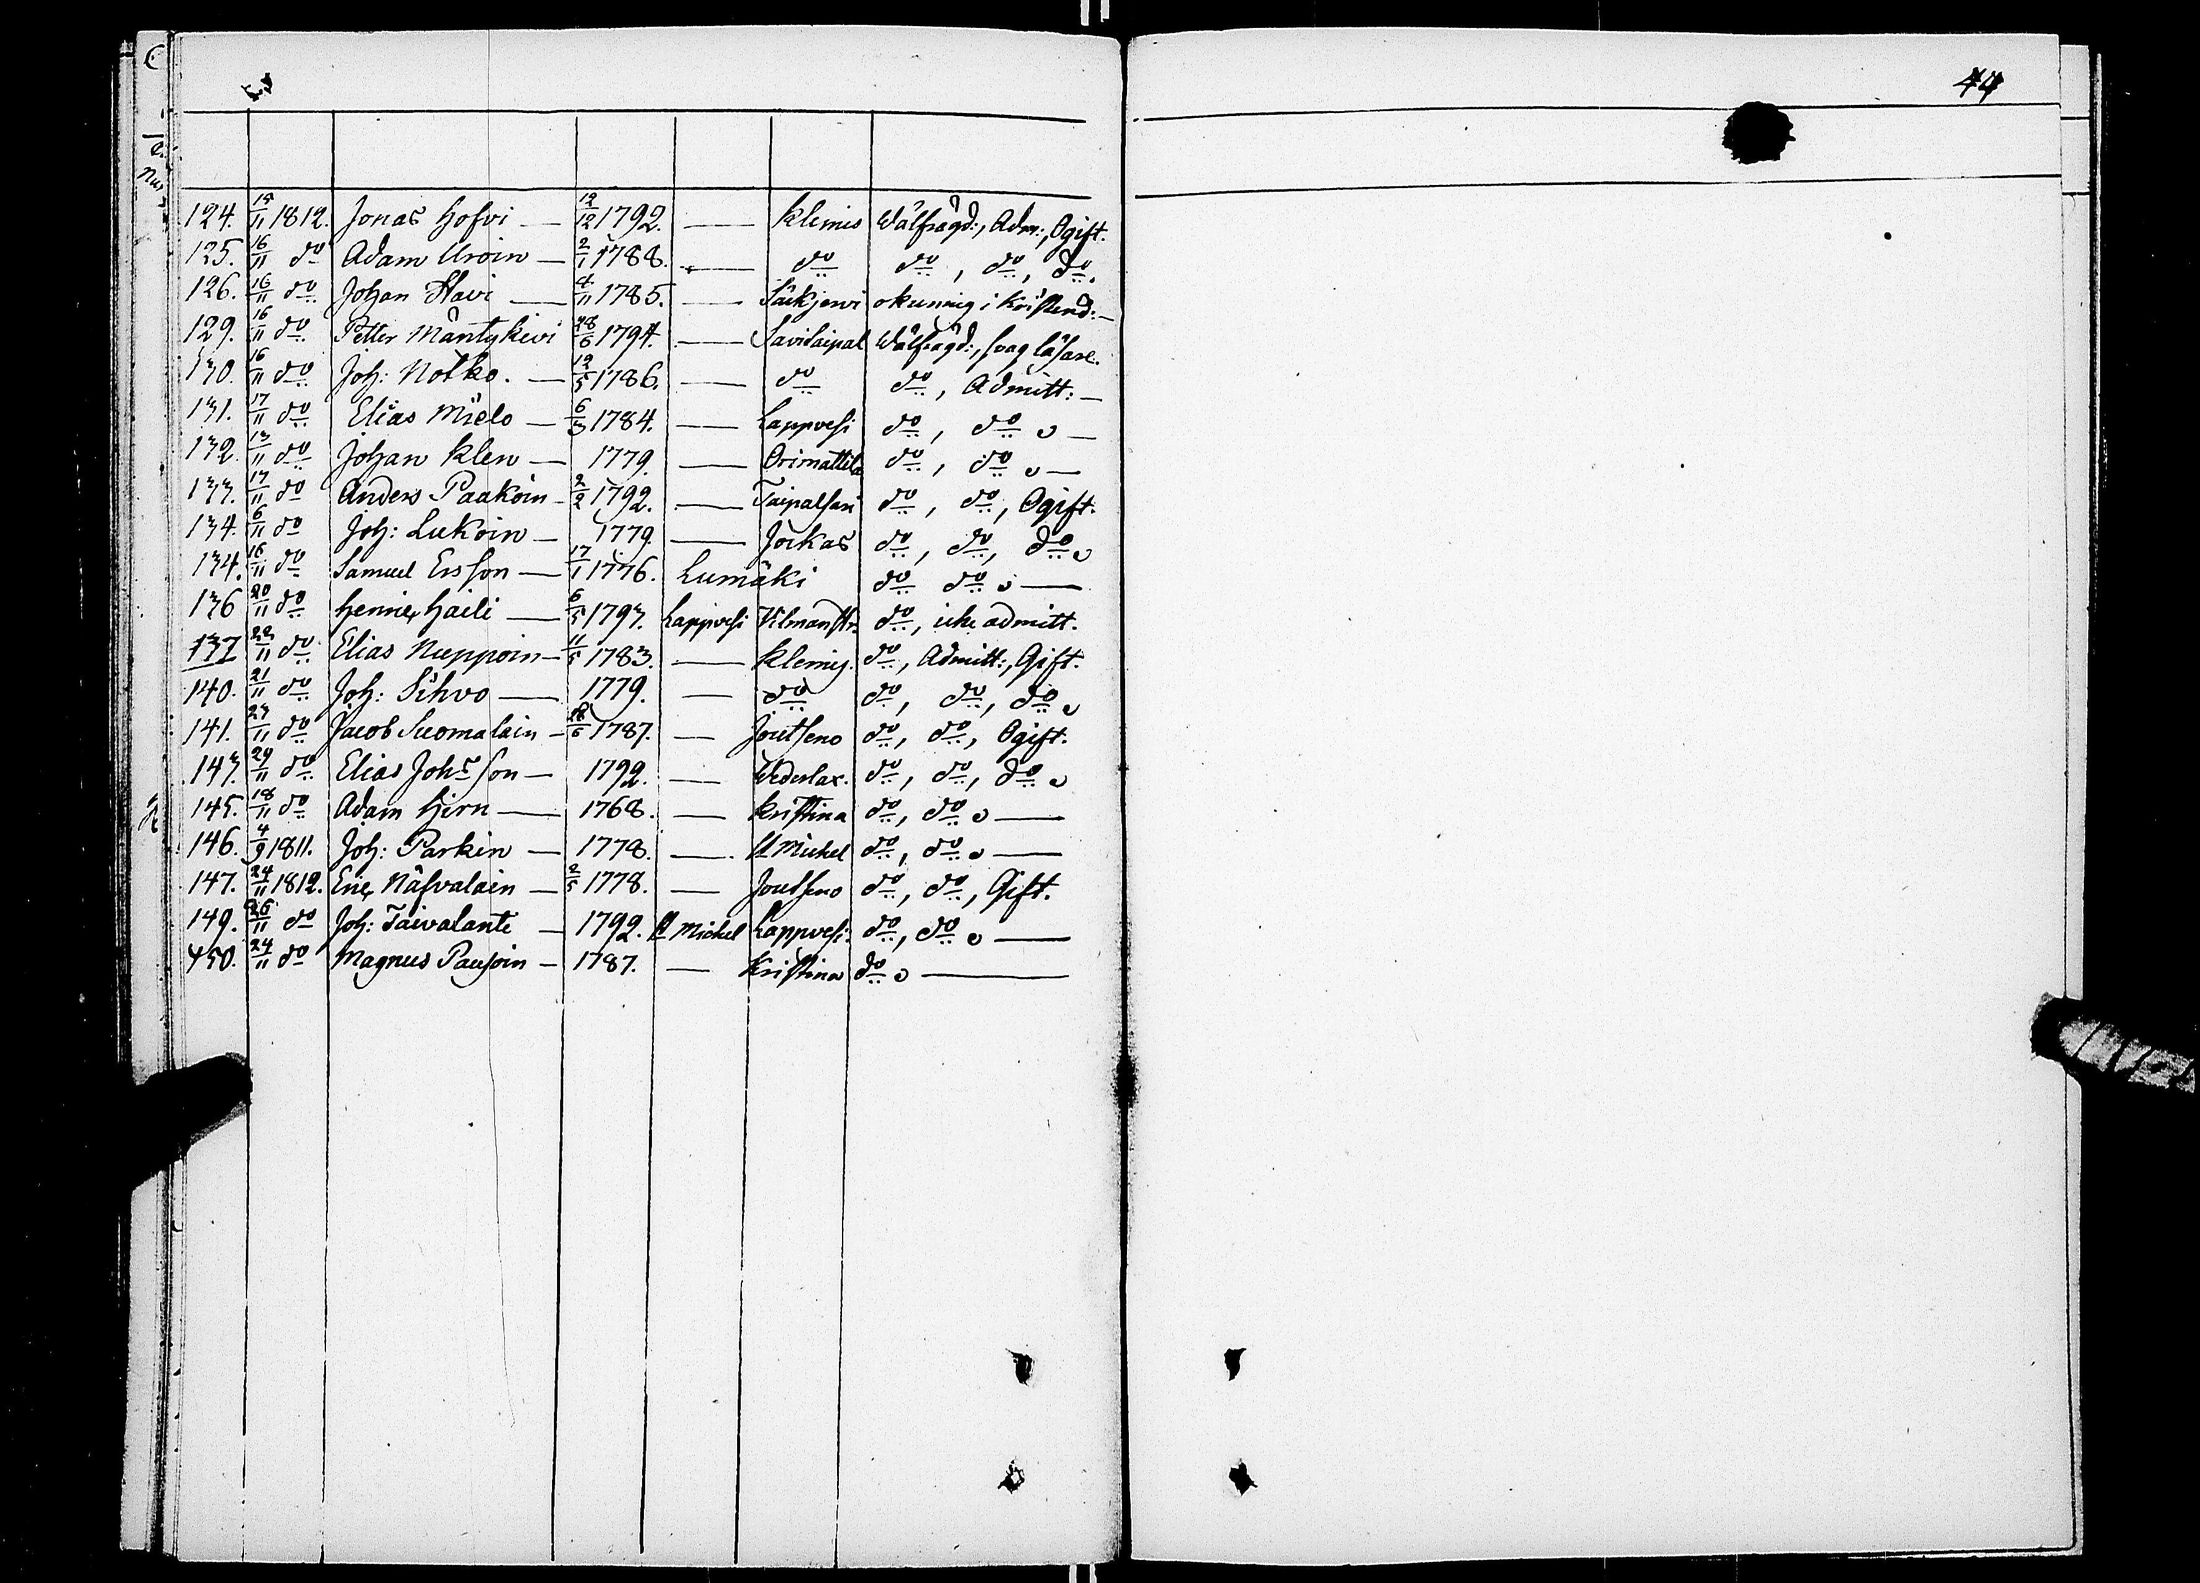 44
124. 18/11 1812. Jonas Hofvi — 12/12 1792. — Klemis Wälfrägd:, Adm:, Ogift.
125. 16/11 do Adam Uroin — 2/1 1788. — do do, do, do.
126. 16/11 do Johan Havi — 4/11 1785. — Säckjervi okunnig i Kristend: —
129. 16/11 do Petter Mäntykivi 28/6 1794. — Savitaipal Wälfrägd:, svag läsare.
130. 16/11 do Joh: Notko. — 12/5 1786. — do do, Admitt: —
131. 17/11 do Elias Mielo — 6/3 1784. — Lappvesi do, do —
132. 13/11 do Johan Klen — 1779. — Orimattila do, do —
133. 17/11 do Anders Paakoin — 2/2 1792. — Taipalsari do, do, Ogift.
134. 6/11 do Joh: Lukoin — 1779. — Jockas do, do, do
134. 16/11 do Samuel Ersson — 17/1 1776. Lumäki do do —
136 20/11 do Henric Haili — 6/5 1793. Lappvesi Vilmanstr. do, icke admitt.
137 22/11 do Elias Nuppoin — 11/5 1783. — Klemis. do, Admitt:, Gift.
140. 21/11 do Joh: Sihvo — 1779. — do do, do, do
141. 23/11 do Jacob Suomalain — 28/6 1787. — Joutseno do, do, Ogift.
143. 24/11 do Elias Johsson — 1792. — Wederlax. do, do, do
145. 18/11 do Adam Hirn — 1768. — Kristina do, do —
146. 4/9 1811. Joh: Parkin — 1778. — St Michel do, do —
147. 24/11 1812. Eric Näsvalain — 2/5 1778. — Joutseno do, do, Gift.
149. 26/11 do Joh: Taivalante — 1792. St Michel Lappvesi. do, do —
150. 24/11 do Magnus Pausoin — 1787. — Kristina do —